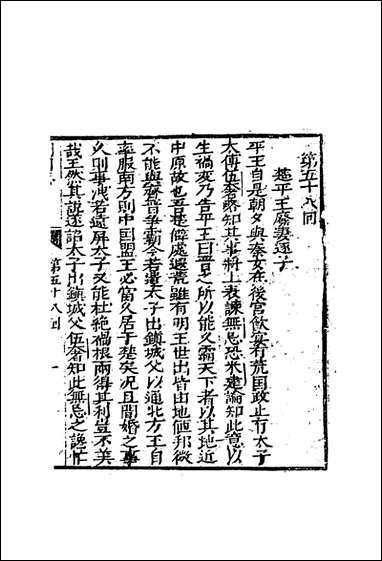 第五十八回
楚平王廢妻逐子
平王自是朝夕與秦女在後宮飲宴有荒国政止有太子
太傅伍奢畧知其事斜上表諫無忌恐米建論知此意以
生禍变乃告平王曰晋之所以能久霸天下者以其地近
中原故也吾楚僻處遐荒雖有明王世出皆由地偪邦微
不能與齊晋爭霸今若遣太子出鎮城父以通北方王自
率服南方則中国盟主必富久居于楚矣况且閨婚之事
久則事洩若遠屏太子又能杜絶禍根兩得其利豈不美
哉王然其說遂詔太子出鎮城父伍奢知此無忌之讒作
第五十八回
一